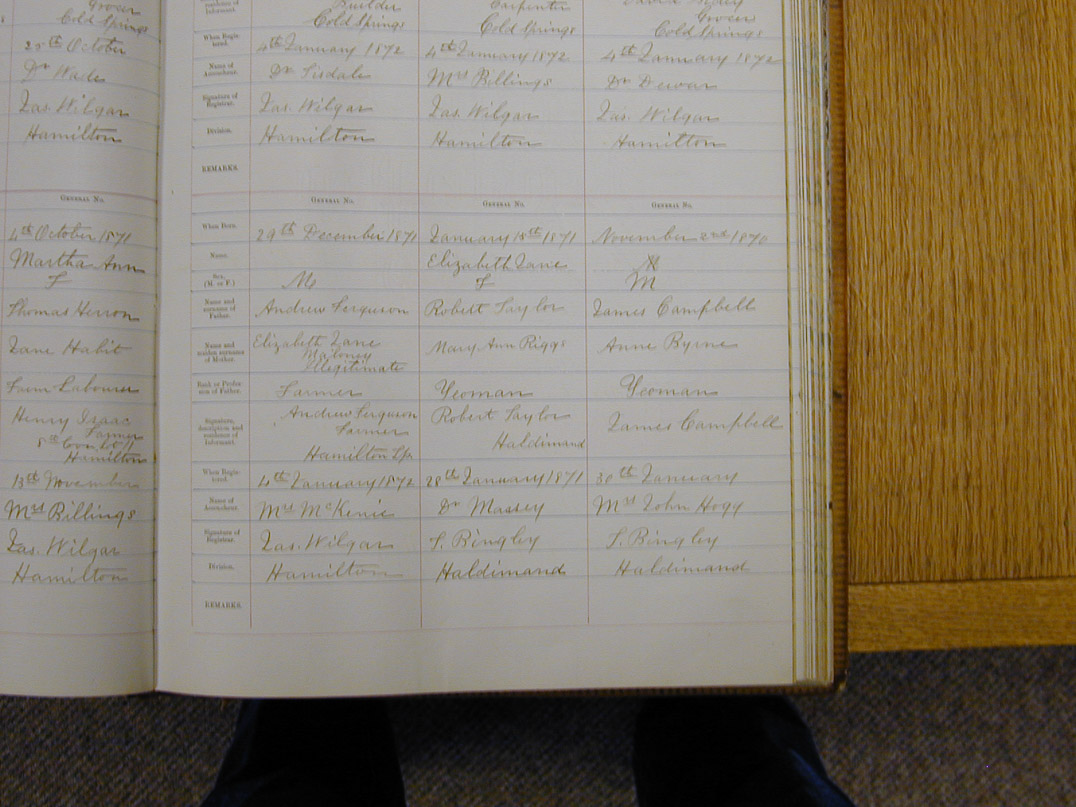 Grocer
Cold Springs
25th October
Dr Wade
Jas. Wilgar
Hamilton
GENERAL NO.
4th October 1871
Martha Ann
F
Thomas Herron
Jane Habit
Farm Labourer
Henry Isaac
Farmer
8th Con. Lot 11
Hamilton
13th November
Mrs Billings
Jas. Wilgar
Hamilton
Informant.
Builder
Carpenter
Cold Springs
Cold Springs
Grocer
Cold Springs
When Registered.
4th January 1872
4th January 1872
4th January 1872
Name of Accoucheur.
Dr Tisdale
Mrs Billings
Dr Dewar
Signature of Registrar.
Jas. Wilgar
Jas. Wilgar
Jas. Wilgar
Division.
Hamilton
Hamilton
Hamilton
REMARKS.
GENERAL NO.
GENERAL NO.
GENERAL NO.
When Born.
29th December 1871
January 18th 1871
November 22nd 1870
Name.
Elizabeth Jane
Sex. (M. or F.)
M
F
M
Name and surname of Father.
Andrew Ferguson
Robert Taylor
James Campbell
Name and maiden surname of Mother.
Elizabeth Jane
Maloney
Illegitimate
Mary Ann Riggs
Anne Byrne
Rank or Profession of Father.
Farmer
Yeoman
Yeoman
Signature, description and residence of Informant.
Andrew Ferguson
Farmer
Hamilton Tp.
Robert Taylor
Haldimand
James Campbell
When Registered.
4th January 1872
28th January 1871
30th January
Name of Accoucheur.
Mrs McKenie
Dr Massey
Mrs John Hogg
Signature of Registrar.
Jas. Wilgar
T. Bingley
T. Bingley
Division.
Hamilton
Haldimand
Haldimand
REMARKS.